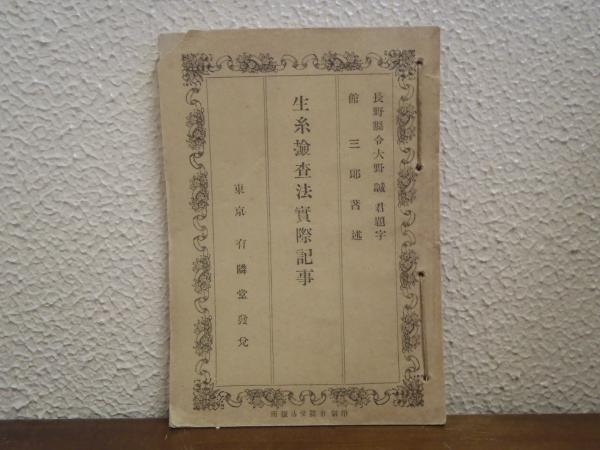 長野縣令大野誠君題字
館三郎著述
生糸撿査法實際記事
東京有隣堂發兌